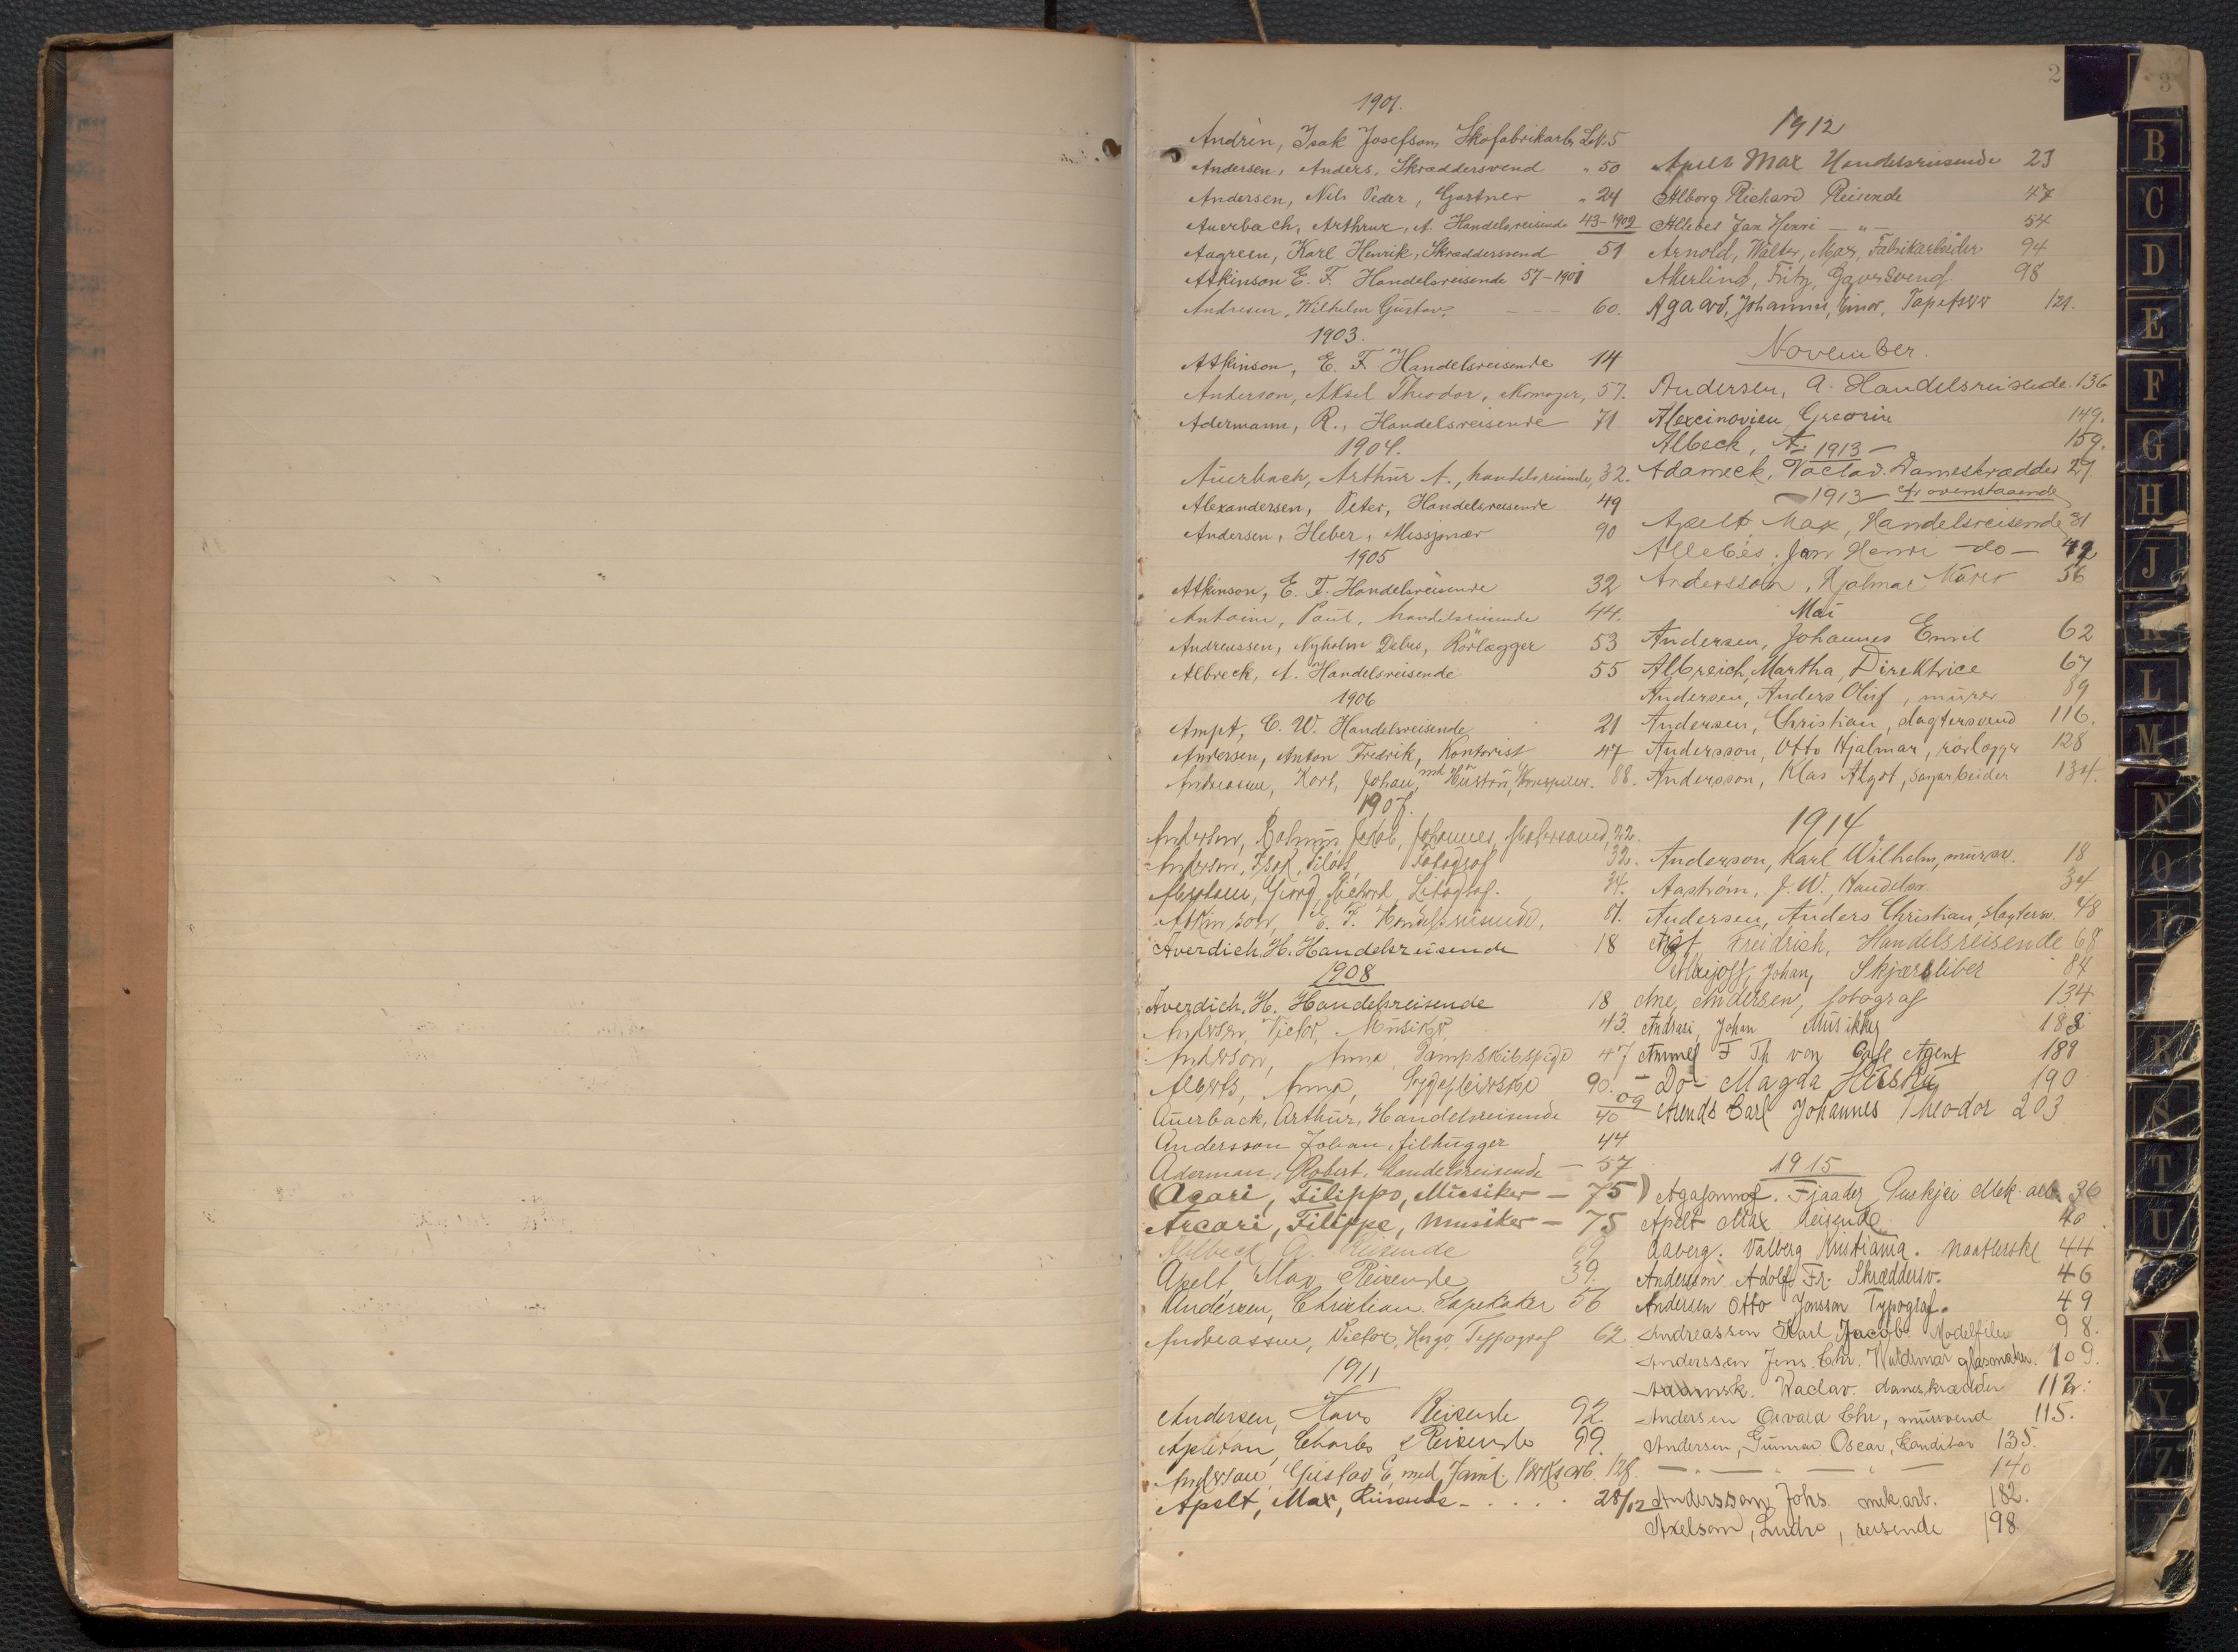 2
3
1901.
Andrèn, Isak Josefson, Skofabrikarb. Lb.5
Andersen, Anders, Skræddersvend " 50
Andersen, Nils Peder, Gartner " 24
Auerbach, Arthur, A. Handelsreisende 43-1902
Aagreen, Karl Henrik, Skræddersvend 51
Atkinson E. F. Handelsreisende 57-1901
Andresen, Wilhelm Gustav. - - - 60.
1903.
Atkinson, E. F. Handelsreisende 14
Anderson, Aksel Theodor, 57.
Adermann, R., Handelsreisende 71
1904.
Auerbach, Arthur A., handelsreisende, 32.
Alexandersen, Peter, Handelsreisende 49
Andersen, Heber, Missjonær 90
1905
Atkinson, E. F. Handelsreisende 32
Antoine, Paul, handelsreisende 44.
Andreassen, Nyholm Debes, Rörlægger 53
Albreck, A. Handelsreisende 55
1906
Ampt, C. W. Handelsreisende 21
Andersen, Anton Fredrik, Kontorist 47
Andreassen, Karl, Johan, med Hustru, 88.
1907.
Andersen, Rasmus, Jakob, Johannes, Malersvend, 22.
Andersen, Isak, Fotograf 32.
Georg, Richard, Litograf. 34.
Atkinson, E. F. Handelsreisende, 81.
Averdich. H. Handelsreisende 18
1908
Averdich. H. Handelsreisende 18
Andersen, Victor, Musiker, 43.
Anderson, Anna, Dampskibspige 47
Alberts, Anna, Sygepleierske 90.
Auerback, Arthur, Handelsreisende 09 40
Andersson Johan, filhugger 44
Aderman, Robert, handelsreisende - 57
(Acari, Filippo, Musiker - 75)
Arcari, Filippe, Musiker - 75
Ahlbeck A. Reisende 69
Apelt Max Reisende 39.
Andersen, Christian. Tapetsker 56
Andreassen, Victor, Hugo, Typograf 62.
1911
Andersen, Hans Reisende 92
Apletan, Charles Reisende 99.
Andersen, Gustav E, med Famil. Verksarb. 128.
Apelt, Max, Reisende - . . . . 28/12
1912
Apelt Max Handelsreisende 23
Alborg Richard Reisende 47
Allebes Jan Henri - " - 54
Arnold, Walter, Max, Fabrikarbeider 94
Akerlind, Fritz, Garversvend 98
Agaard, Johannes, Einar, Tapetserer 121.
November.
Andersen, A. Handelsreisende 136
Alexcinovieu Greorin 149.
Albeck, A. 159.
- 1913 -
Adameck, Vaclav. Dameskrædder 29
- 1913 - ovenstaaende
Apelt, Max, Handelsreisende 31
Allebés, Jan Henri - do - 42
Andersson, Hjalmar Murer 56
Mai
Andersen, Johannes Emil 62
Albreich, Martha, Direktrice 67
Andersen, Anders Oluf, murer 89
Andersen, Christian, slagtersvend 116.
Andersson, Otto Hjalmar, rörlægger 128
Andersson, Klas Algot, sagarbeider 134.
1914
Anderson, Karl Wilhelm, murer. 18
Aaström, J. W., Handelsr. 34
Andersen, Anders Christian, slagtersv. 48
Freidrich, Handelsreisende 68
Johan, Skjærsliber 84
Ane, Andersen, fotograf 134
Andrasi, Johan Musikker 188
Ammel F Th von Agent 189
- Do - Magda Hustru 190
Arends Carl Johannes Theodor 203
1915
Fjaader Mek. arb. 36
Apelt Max Reisende 40
Aaberg. Valborg Kristiania. 44
Andersson Adolf Fr. Skræddersv. 46
Andersen Otto Jonsson Typograf. 49
Andreassen Karl Jacob. 98.
Anderssen Jens. Chr. Waldemar glasmaker. 109.
Adamsk. Waclav. dameskrædder 112.
Andersen Osvald Chr, mursvend 115.
Andersen, Gunnar Oscar, Konditor 135.
- " - " - " - 140
Andersson, Johs. mek.arb. 182.
Axelson, Ludro, reisende 198.
B
C
D
E
F
G
H
J
K
L
M
N
O
P
R
S
T
U
X
Y
Z